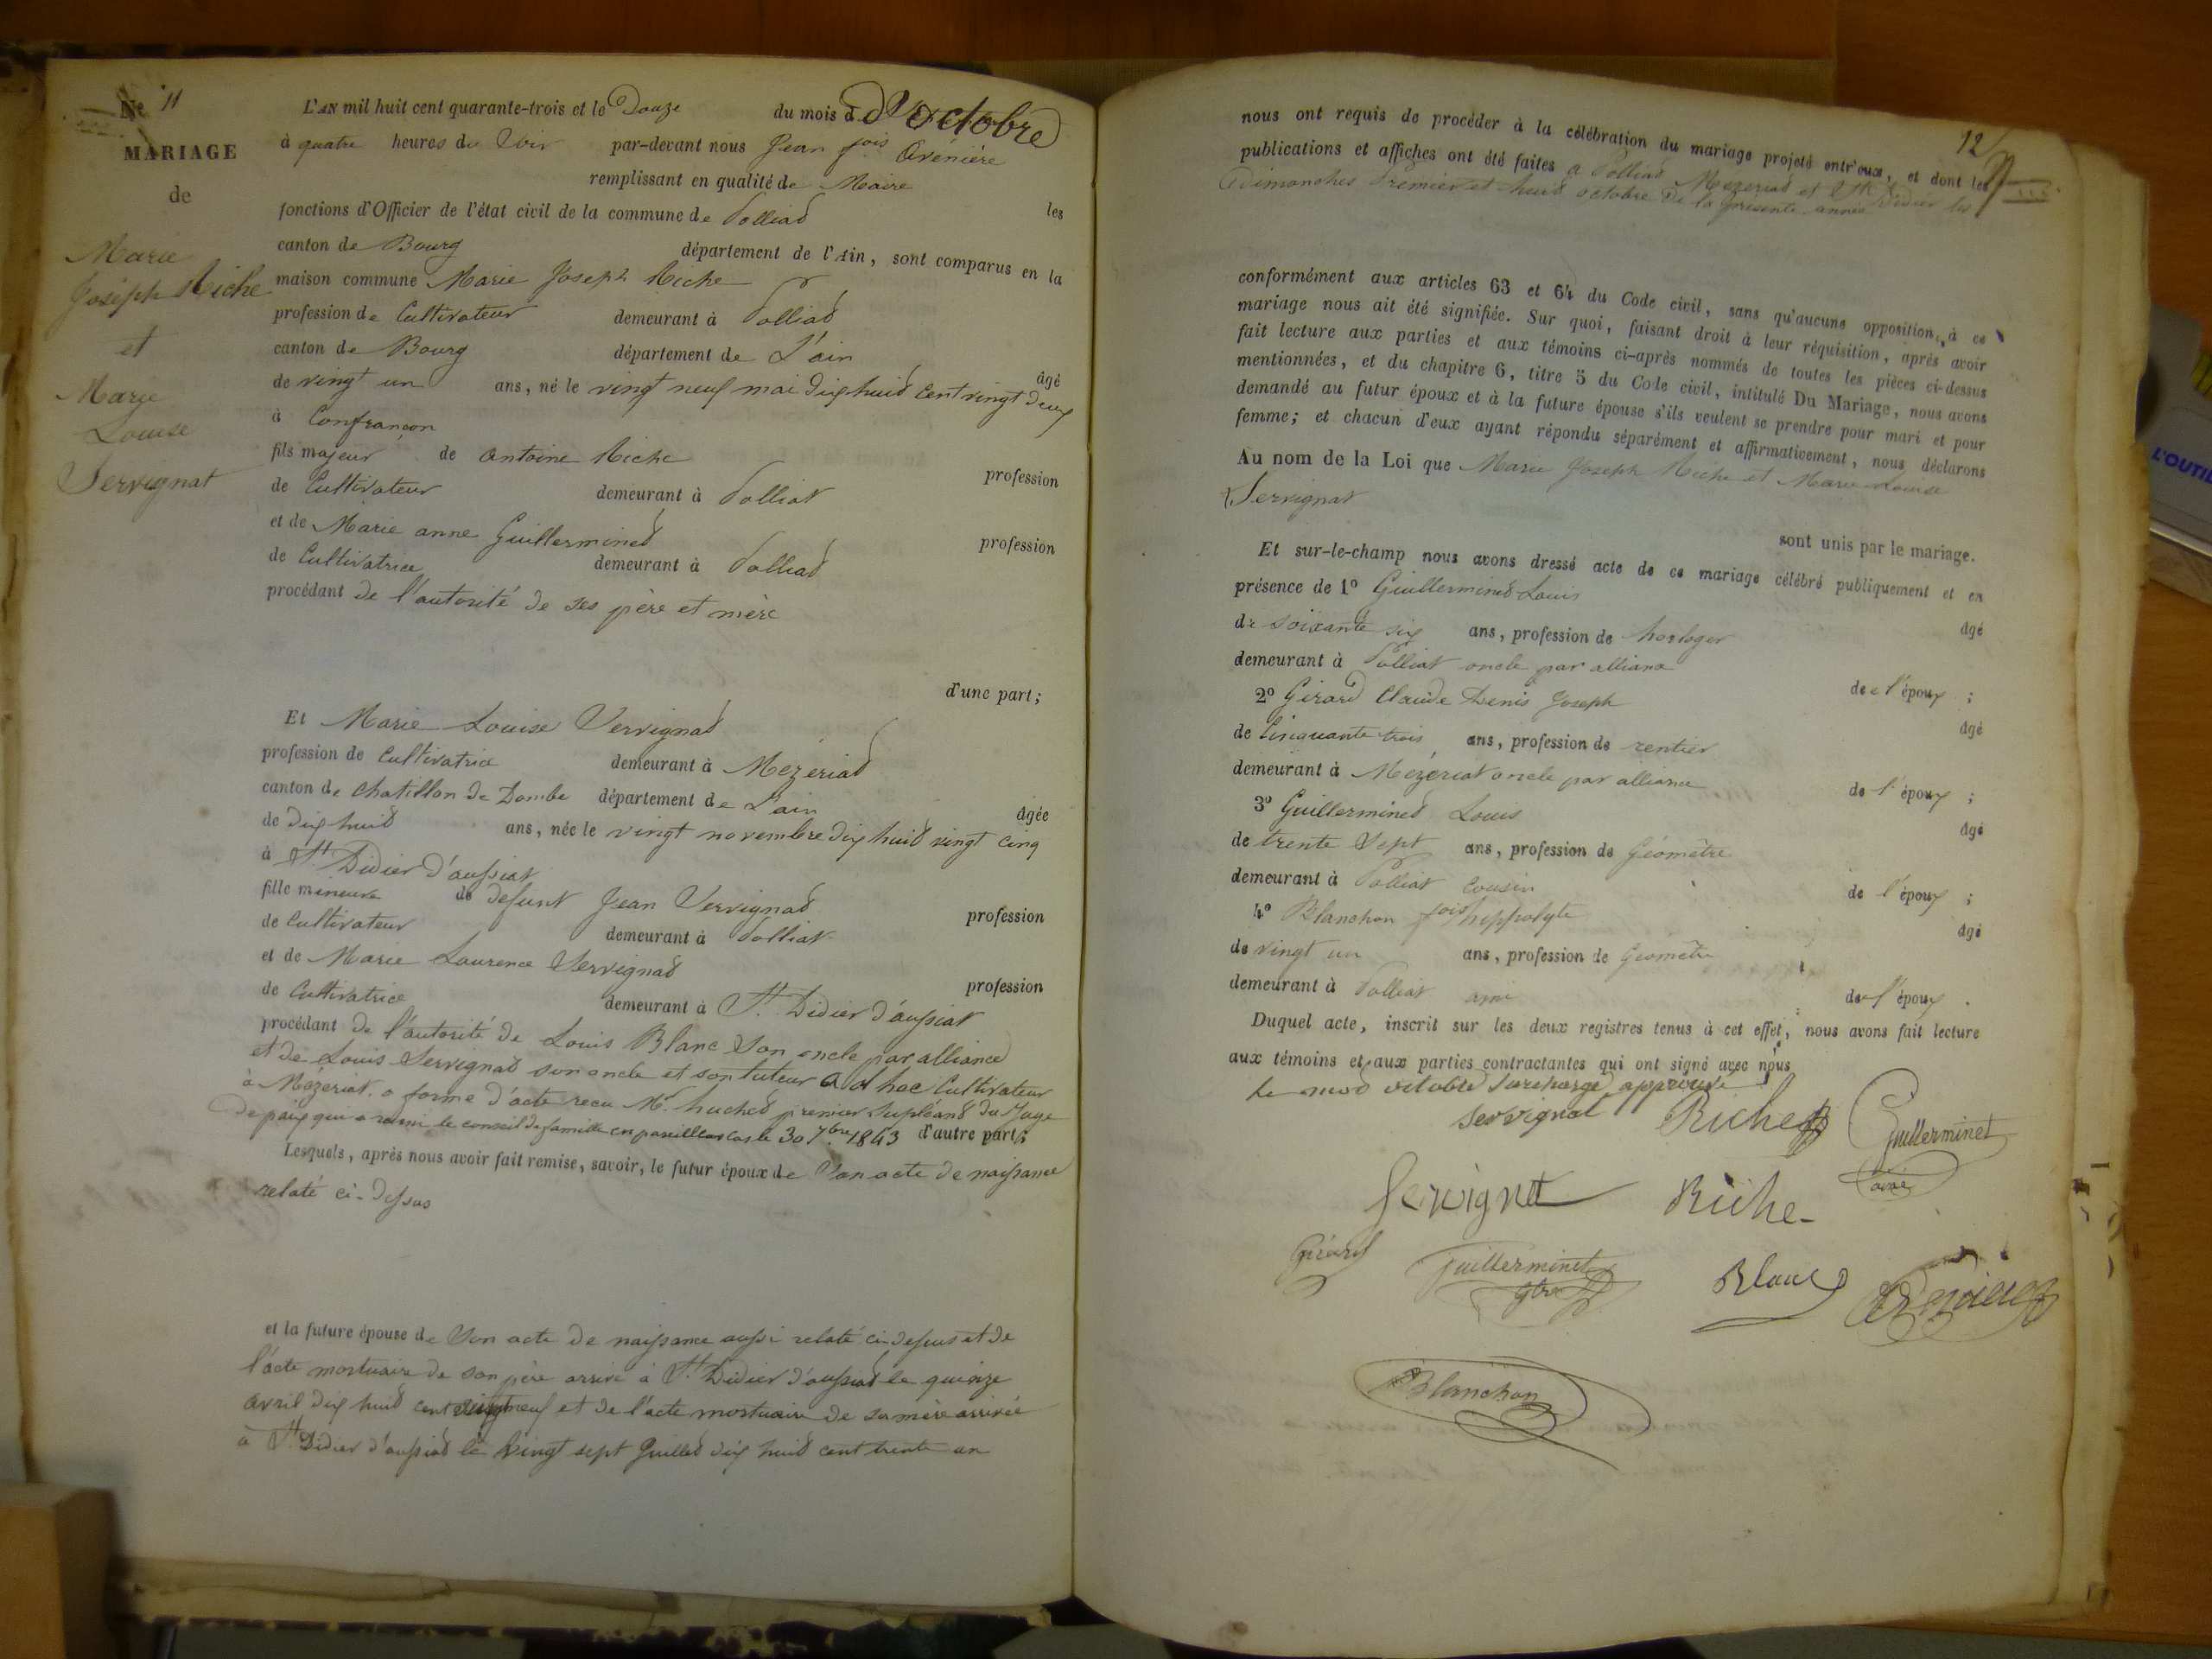 Ne 11
MARIAGE
de
Marie
Joseph Riche
et
Marie
Louise
Servignat
L'AN mil huit cent quarante-trois et le Douze du mois d'octobre
à quatre heures du Soir par-devant nous Jean fois Avénière
remplissant en qualité de Maire les
fonctions d'Officier de l'état civil de la commune de Polliat
canton de Bourg département de l'Ain, sont comparus en la
maison commune Marie Joseph Riche
profession de Cultivateur demeurant à Polliat
canton de Bourg département de L'ain âgé
de vingt un ans, né le vingt neuf mai dix huit cent vingt deux
à Confrançon
fils majeur de Antoine Riche profession
de Cultivateur demeurant à Polliat
et de Marie anne Guillerminet profession
de Cultivatrice demeurant à Polliat
procédant de l'autorité de ses père et mère
d'une part;
Et Marie Louise Servignat
profession de Cultivatrice demeurant à Mézériat
canton de Chatillon de Dombe département de L'ain âgée
de dix huit ans, née le vingt novembre dix huit vingt cinq
à St Didier d'aussiat
fille mineure de defunt Jean Servignat profession
de Cultivateur demeurant à Polliat
et de Marie Laurence Servignat profession
de Cultivatrice demeurant à St Didier d'aussiat
procédant de l'autorité de Louis Blanc Son oncle par alliance
et de Louis Servignat son oncle et son tuteur ad hoc Cultivateur
à Mézériat. a forme d'acte recu Mr. huchet premier Supleant du Juge
de paix qui a reuni le conseil de famille en pareille cas le 30 7bre 1843 d'autre part;
Lesquels, après nous avoir fait remise, savoir, le futur époux de Son acte de naissance
relaté ci-dessus
et la future épouse de Son acte de naissance aussi relaté ci-dessus et de
l'acte mortuaire de son père arrivé à St Didier d'aussiat le quinze
avril dix huit cent vingt neuf et de l'acte mortuaire de sa mère arrivée
à St Didier d'aussiat le vingt sept Juillet dix huit cent trente un
12
nous ont requis de procéder à la célébration du mariage projeté entr'eux, et dont les
publications et affiches ont été faites a Polliat Mezeriat et St Didier les
Dimanches Premier et huit octobre de la présente année
conformément aux articles 63 et 64 du Code civil, sans qu'aucune opposition à ce
mariage nous ait été signifiée. Sur quoi, faisant droit à leur réquisition, après avoir
fait lecture aux parties et aux témoins ci-après nommés de toutes les pièces ci-dessus
mentionnées, et du chapitre 6, titre 5 du Code civil, intitulé Du Mariage, nous avons
demandé au futur époux et à la future épouse s'ils veulent se prendre pour mari et pour
femme; et chacun d'eux ayant répondu séparément et affirmativement, nous déclarons
Au nom de la Loi que Marie Joseph Riche et Marie Louise
Servignat
sont unis par le mariage.
Et sur-le-champ nous avons dressé acte de ce mariage célébré publiquement et en
présence de 1o Guillerminet Louis âgé
de soixante six ans, profession de horloger
demeurant à Polliat oncle par alliance de l'époux ;
2o Girard Claude Denis Joseph âgé
de Cinquante trois ans, profession de rentier
demeurant à Mézériat oncle par alliance de l'époux ;
3o Guillerminet Louis âgé
de trente Sept ans, profession de Géomètre
demeurant à Polliat cousin de l'époux ;
4o Blanchon fois hippolyte âgé
de vingt un ans, profession de Géomètre
demeurant à Polliat ami de l'époux .
Duquel acte, inscrit sur les deux registres tenus à cet effet, nous avons fait lecture
aux témoins et aux parties contractantes qui ont signé avec nous
le mot octobre surchargé approuvé
Servignat Riche Guillerminet
ainé
Servignat Riche
Girard Guillerminet Blanc Avénière
gtre
Blanchon
L'OUTIL